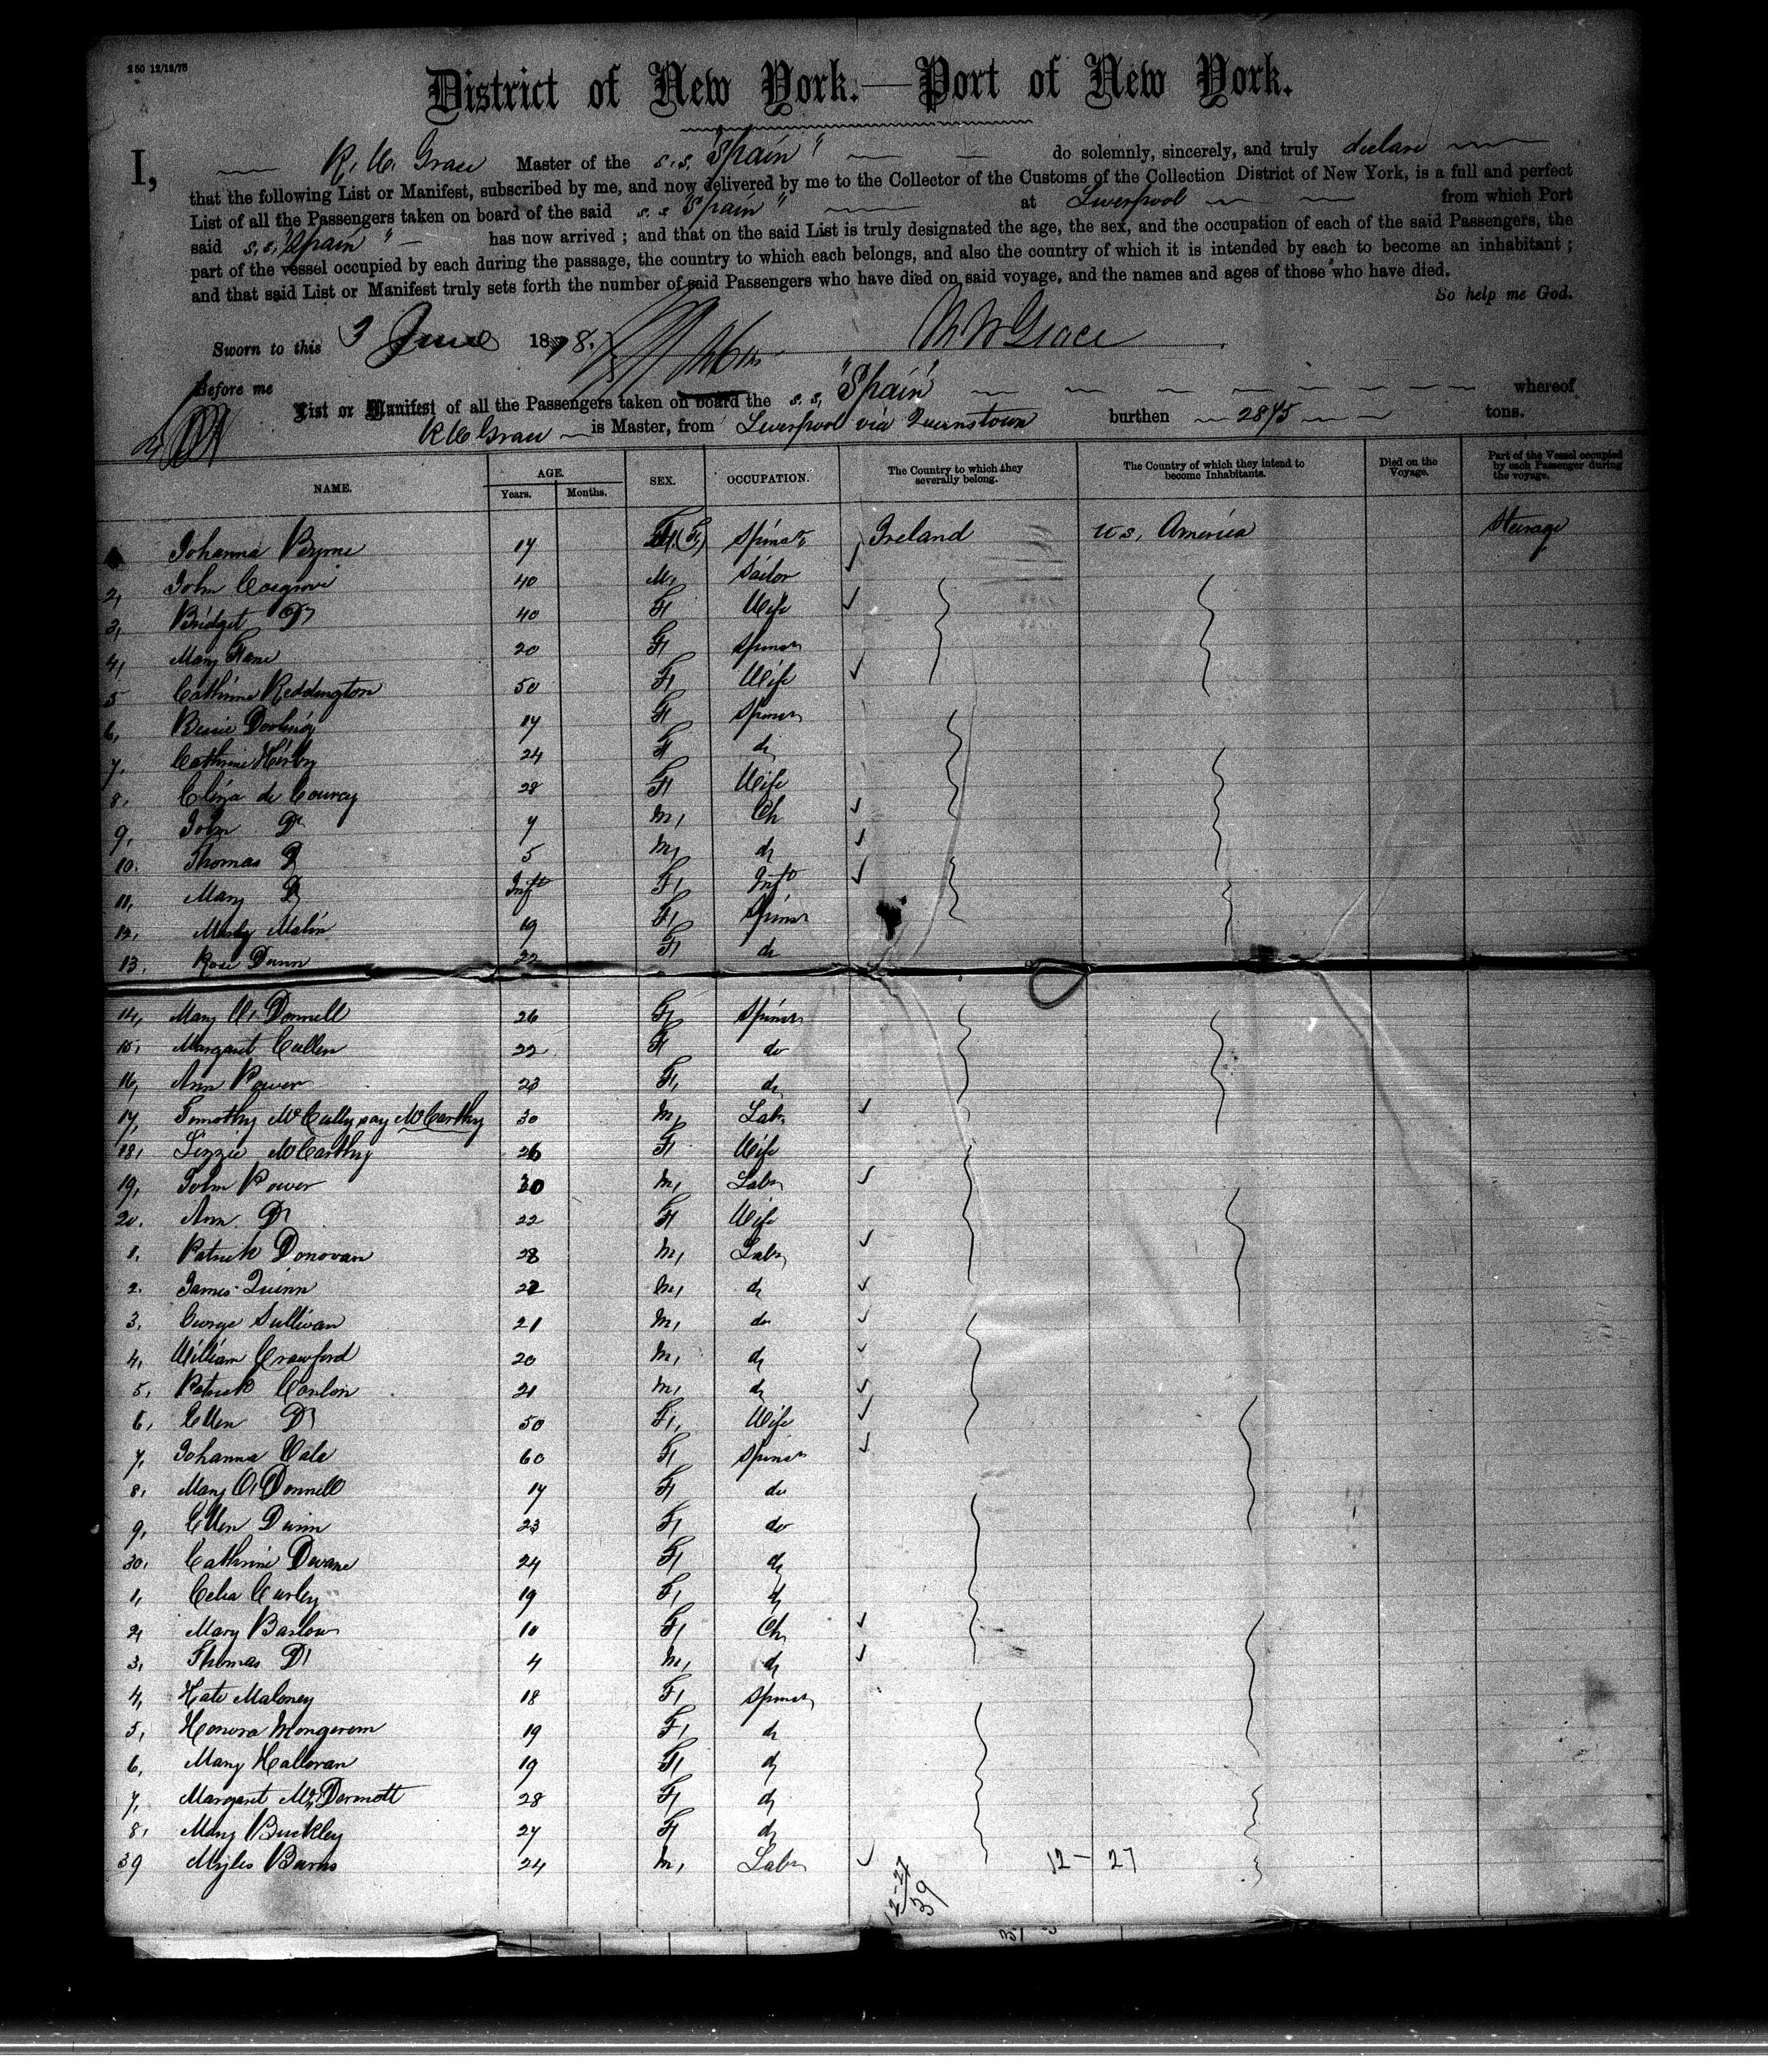 250 12/12/75
District of New York.—Port of New York.
I, R. W. Grace Master of the s.s. "Spain" do solemnly, sincerely, and truly declare
that the following List or Manifest, subscribed by me, and now delivered by me to the Collector of the Customs of the Collection District of New York, is a full and perfect
List of all the Passengers taken on board of the said s.s "Spain" at Liverpool from which Port
said s.s, "Spain" has now arrived; and that on the said List is truly designated the age, the sex, and the occupation of each of the said Passengers, the
part of the vessel occupied by each during the passage, the country to which each belongs, and also the country of which it is intended by each to become an inhabitant;
and that said List or Manifest truly sets forth the number of said Passengers who have died on said voyage, and the names and ages of those who have died.
So help me God.
Sworn to this 3 June 1878. R W Grace
Before me
List or Manifest of all the Passengers taken on board the s.s, "Spain" whereof
R W Grace is Master, from Liverpool via Queenstown burthen 2875 tons.
NAME. AGE. Years. Months. SEX. OCCUPATION. The Country to which they severally belong. The Country of which they intend to become Inhabitants. Died on the Voyage. Part of the Vessel occupied by each Passenger during the voyage.
Johanna Byrne 17 (F) Spinsr Ireland U.S. America Steerage
2, John Cosgrove 40 M, Sailor
3, Bridget Do 40 F Wife
4, Mary 20 F Spinsr
5 Cathrine Reddington 50 F Wife
6, Bessie 17 F Spinsr
7. Cathrine Kirby 24 F do
8. Eliza de Courcy 28 F Wife
9, John Do 7 M, Ch
10. Thomas Do 5 M, do
11, Mary Do Inft F, Inft
12. Malin 19 F, Spinsr
13. Rose Dunn 22 F do
14, Mary O'Donnell 26 F, Spinsr
15, Margaret Cullen 22 F do
16, Ann Power 23 F, do
17, Timothy McCully say McCarthy 30 M, Labr
18, Lizzie McCarthy 26 F Wife
19, John Power 30 M, Labr
20. Ann Do 22 F Wife
1. Patrick Donovan 28 M, Labr
2. James Quinn 22 M, do
3. George Sullivan 21 M, do
4, William Crawford 20 M, do
5. Patrick Conlon 21 M, do
6, Ellen Do 50 F, Wife
7, Johanna 60 F Spinsr
8, Mary O'Donnell 17 F, do
9, Ellen Dunn 23 F, do
30, Cathrine Dwane 24 F, do
1, Celia Curley 19 F, do
2, Mary Barlow 10 F, Ch
3, Thomas Do 4 M, do
4, Kate Maloney 18 F, Spinsr
5, Honora 19 F, do
6, Mary Halloran 19 F, do
7, Margaret McDermott 28 F, do
8, Mary Buckley 27 F do
39 Myles Burns 24 M, Labr
12 - 27
12-27
39